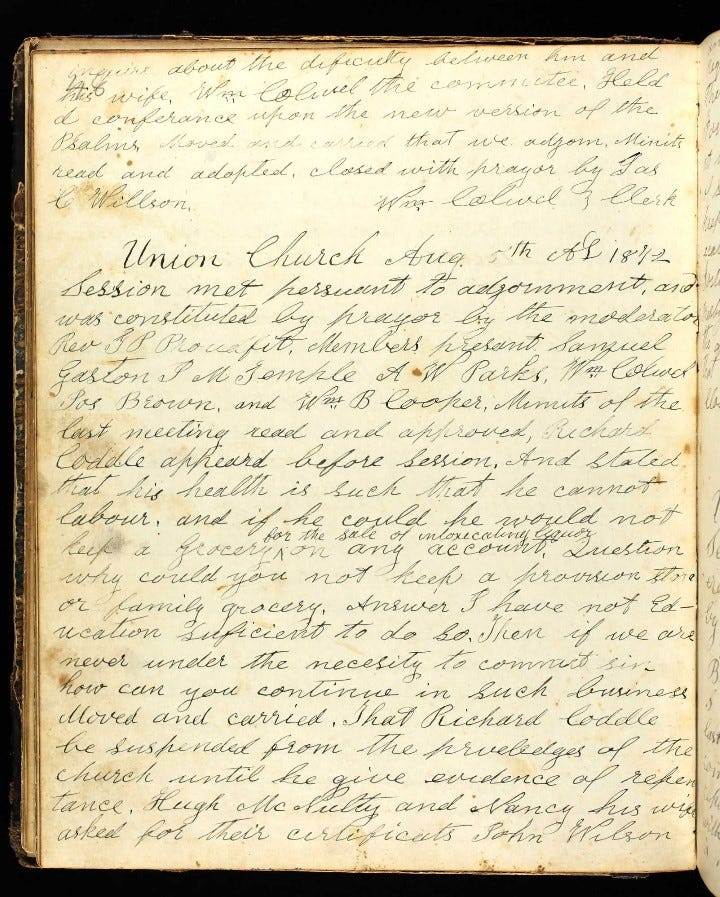 inquire about the dificulty between him and
his wife, Wm Colwel the commitee. Held
a conferance upon the new version of the
Psalms Moved and carried that we adgorn. Minits
read and adopted. closed with prayor by Jas
C Willson. Wm Colwel } Clerk
Union Church Aug 5th AD 1872
Session met persuant to adgornment, and
was constituted by prayor by the moderator
Rev J P Proudfit. Members present Samuel
Gaston J M Temple A W Parks. Wm Colwel
Jos Brown. and Wm B Cooper. Minuts of the
last meeting read and approved, Richard
Coddle appeard before Session. And stated
that his health is such that he cannot
labour. and if he could he would not
for the sale of intoxicating liquor
keep a Grocery ^ on any account. Question
why could you not keep a provision store
or family grocery. Answer I have not Ed-
ucation suficient to do so. Then if we are
never under the necesity to commit sin
how can you continue in such business
Moved and carried. That Richard Coddle
be suspended from the priveledges of the
church until he give evedence of repen
tance. Hugh McNulty and Nancy his wife
asked for their certificats John Wilson